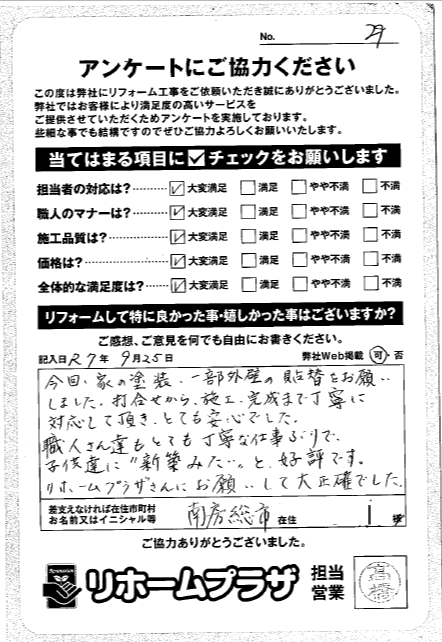 No. 29
アンケートにご協力ください
この度は弊社にリフォーム工事をご依頼いただき誠にありがとうございました。
弊社ではお客様により満足度の高いサービスを
ご提供させていただくためアンケートを実施しております。
些細な事でも結構ですのでぜひご協力よろしくお願いいたします。
当てはまる項目に☑チェックをお願いします
担当者の対応は?………… ☑大変満足 □満足 □やや不満 □不満
職人のマナーは?………… ☑大変満足 □満足 □やや不満 □不満
施工品質は?………… ☑大変満足 □満足 □やや不満 □不満
価格は?………… ☑大変満足 □満足 □やや不満 □不満
全体的な満足度は?…… ☑大変満足 □満足 □やや不満 □不満
リフォームして特に良かった事・嬉しかった事はございますか?
ご感想、ご意見を何でも自由にお書きください。
記入日 R7年 9月25日 弊社Web掲載 可・否
今回、家の塗装、一部外壁の貼替をお願い
しました。打合せから、施工、完成まで丁寧に
対応して頂き、とても安心でした。
職人さん達もとても丁寧な仕事ぶりで、
子供達に"新築みたい"と、好評です。
リホームプラザさんにお願いして大正確でした。
差支えなければ在住市町村
お名前又はイニシャル等 南房総市 在住 I 様
ご協力ありがとうございました。
リホームプラザ 担当営業 高橋